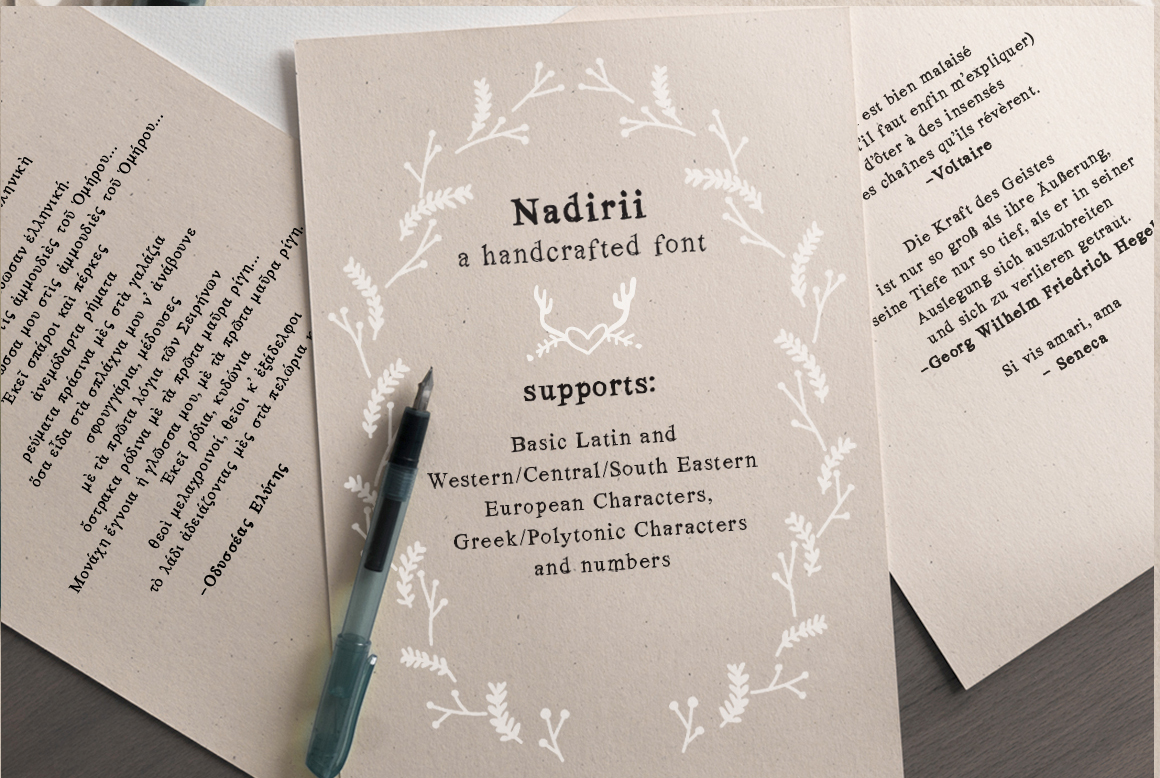 ηνικὴ
ἑλληνική.
ἀμμουδιὲς τοῦ Ὁμήρου...
μου στὶς ἀμμουδιὲς τοῦ Ὁμήρου...
Ἐκεῖ σπάροι καὶ πέρκες
ἀνεμόδαρτα ρήματα
ρεύματα πράσινα μὲς στὰ γαλάζια
ὅσα εἶδα στὰ σπλάχνα μου ν' ἀνάβουνε
σφουγγάρια, μέδουσες
μὲ τὰ πρῶτα λόγια τῶν Σειρήνων
ὄστρακα ρόδινα μὲ τὰ πρῶτα μαῦρα ρίγη...
Μονάχη ἔγνοια ἡ γλῶσσα μου, μὲ τὰ πρῶτα μαῦρα ρίγη.
Ἐκεῖ ρόδια, κυδώνια
θεοὶ μελαχροινοί, θεῖοι κ' ἐξάδελφοι
τὸ λάδι ἀδειάζοντας μὲς στὰ πελώρια
–Οδυσσέας Ελύτης
Nadirii
a handcrafted font
supports:
Basic Latin and
Western/Central/South Eastern
European Characters,
Greek/Polytonic Characters
and numbers
est bien malaisé
'il faut enfin m'expliquer)
d'ôter à des insensés
es chaînes qu'ils révèrent.
–Voltaire
Die Kraft des Geistes
ist nur so groß als ihre Äußerung,
seine Tiefe nur so tief, als er in seiner
Auslegung sich auszubreiten
und sich zu verlieren getraut.
–Georg Wilhelm Friedrich Hegel
Si vis amari, ama
– Seneca